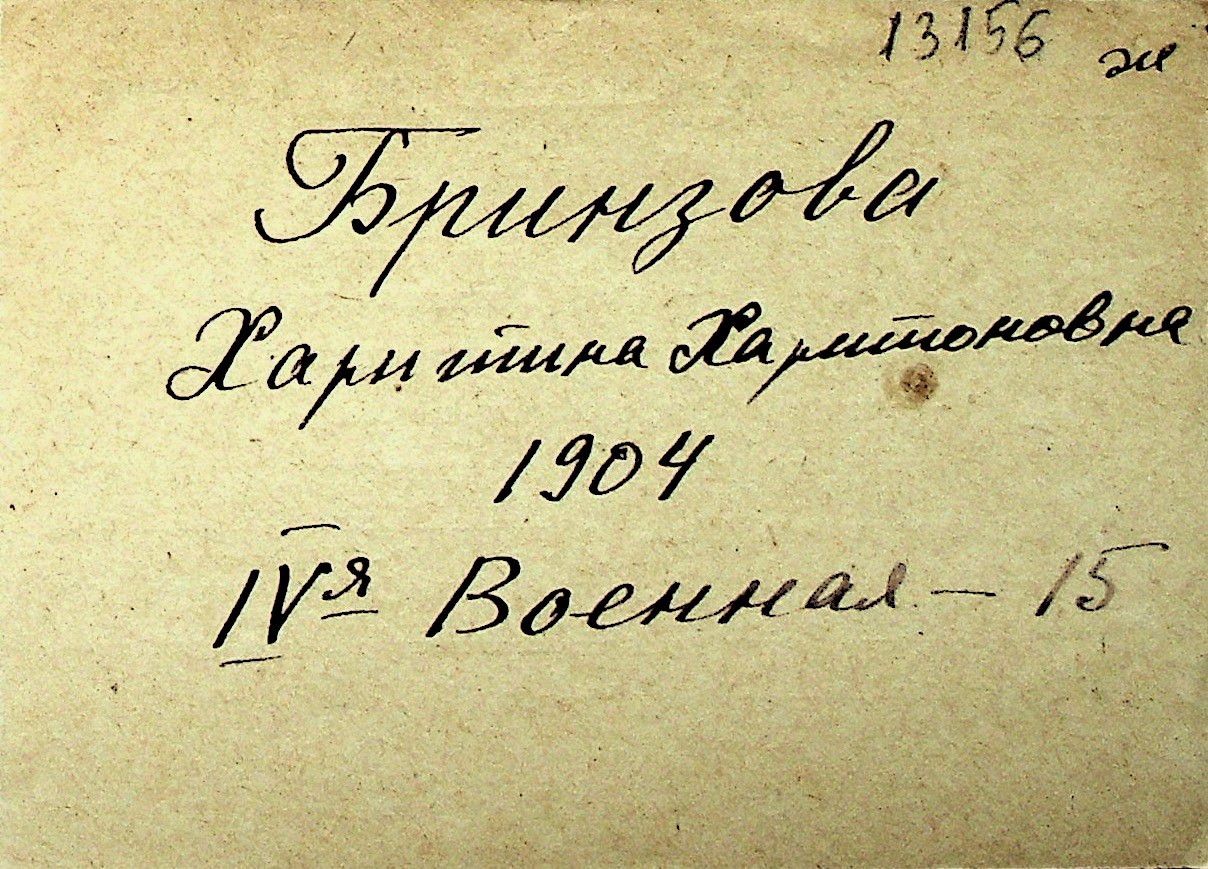 13156 ж
Бринзова
Харитина Харитоновна
1904
IVя Военная - 15